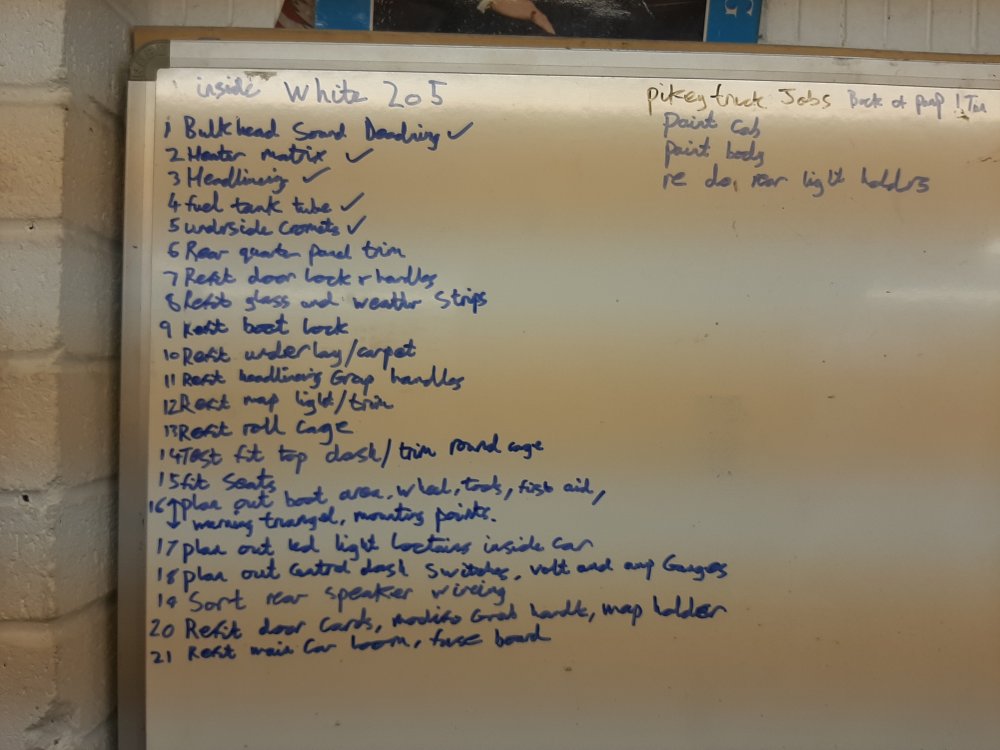 inside White 205
1 Bulkhead Sound Deadning ✓
2 Heater matrix ✓
3 Headlining ✓
4 fuel tank tube ✓
5 underside ✓
6 Rear quarter panel trim
7 Refit door lock + handles
8 Refit glass and weather Strips
9 Refit boot lock
10 Refit underlay/carpet
11 Refit headlining Grap handles
12 Refit map light/trim
13 Refit roll cage
14 Test fit top dash/trim round cage
15 fit Seats
16 plan out boot area, wheel, tools, first aid,
warning triangel, mounting points.
17 plan out led light loctains inside car
18 plan out Central dash Switches, volt and amp Gauges
19 Sort rear speaker wireing
20 Refit door Cards, Grab handle, map holder
21 Refit main Car loom, fuse board
pikey truck Jobs Back of
paint cab
paint body
re do, rear light holdrs
5